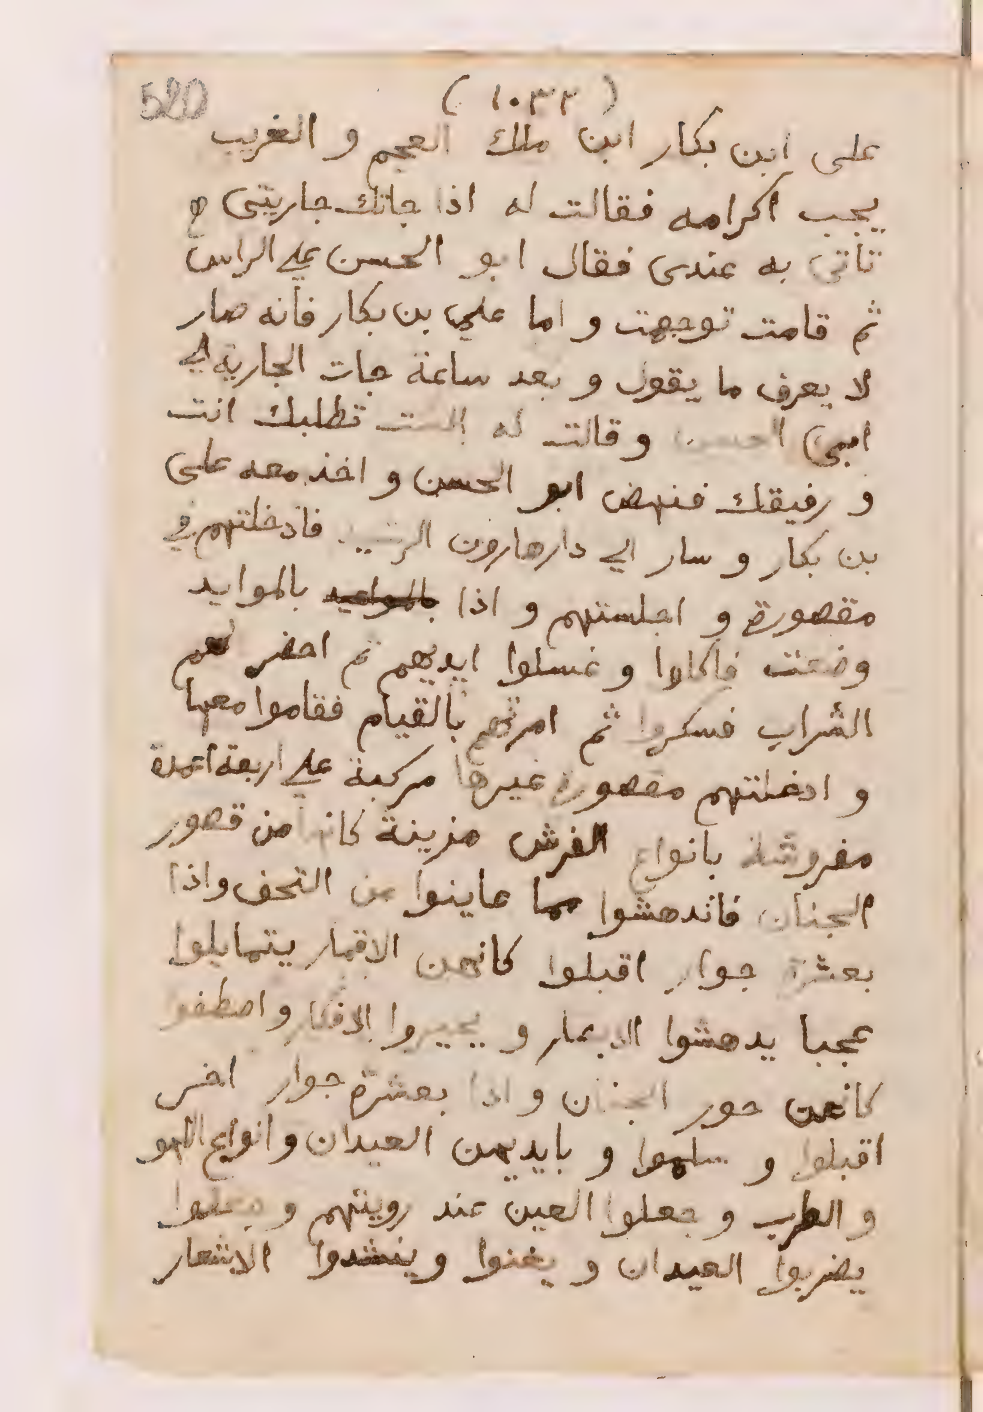 520
(١٠٣٢)
على ابن بكار ابن ملك العجم و الغريب
يجب اكرامه فقالت له اذا جاتك جاريتى
تاتى به عندى فقال ابو الحسن علي الراس
ثم قامت توجهت و اما علي بن بكار فانه صار
لا يعرف ما يقول و بعد ساعة جات الجارية الي
ابى الحسن و قالت له الست تطلبك انت
و رفيقك فنهض ابو الحسن و اخذ معه على
بن بكار و سار الي دار هارون الرشيد فادخلتهم في
مقصورة و اجلستهم و اذا بالموايد
وضعت فاكلوا و غسلوا ايديهم ثم احضر لهم
الشراب فسكروا ثم امرتهم بالقيام فقاموا معها
و ادخلتهم مقصورة غيرها مركبة علي اربعة اعمدة
مفروشة بانواع الفرش مزينة كانها من قصور
الجنان فاندهشوا مما عاينوا من التحف واذا
بعشرة جوار اقبلوا كانهن الاقمار يتمايلوا
عجبا يدهشوا الابصار و يحيروا الافكار و اصطفوا
كانهن حور الجنان و اذا بعشرة جوار اخر
اقبلوا و سلموا و بايديهن العيدان و انواع اللهو
و الطرب و جعلوا العين عند رويتهم و جعلوا
يضربوا العيدان و يغنوا و ينشدوا الاشعار